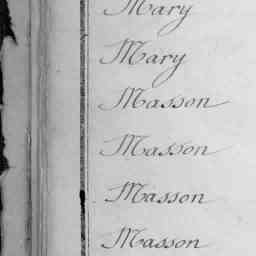 Mary
Mary
Masson
Masson
Masson
Masson